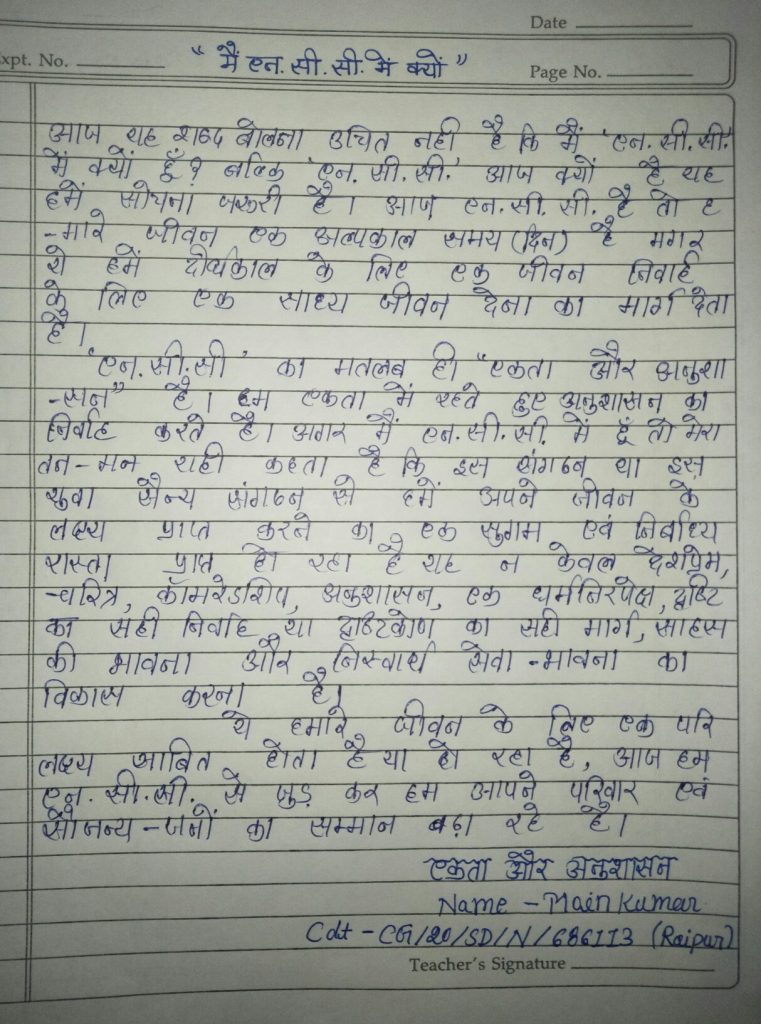 Date
Expt. No.
" मैं एन. सी. सी. में क्यों "
Page No.
आज यह शब्द बोलना उचित नही है कि मैं 'एन. सी. सी.'
में क्यों हूँ ? बल्कि 'एन. सी. सी.' आज क्यों है यह
हमें सोचना जरूरी है। आज एन. सी. सी. है तो ह
-मारे जीवन एक अल्पकाल समय (दिन) है मगर
ये हमें दीर्घकाल के लिए एक जीवन निवार्ह
के लिए एक साध्य जीवन देना का मार्ग देता
है।
'एन. सी. सी' का मतलब ही "एकता और अनुशा
-सन" है। हम एकता में रहते हुए अनुशासन का
निर्वाह करते है। अगर मैं एन. सी. सी. में हूँ तो मेरा
तन-मन यही कहता है कि इस संगठन या इस
युवा सैन्य संगठन से हमें अपने जीवन के
लक्ष्य प्राप्त करने का एक सुगम एवं निर्बाध्य
रास्ता प्राप्त हो रहा है यह न केवल देशप्रेम,
चरित्र, कॉमरेडशिप, अनुशासन, एक धर्मनिरपेक्ष, दृष्टि
का सही निर्वाह या दृष्टिकोण का सही मार्ग, साहस
की भावना और निस्वार्थ सेवा-भावना का
विकास करना है।
ये हमारे जीवन के लिए एक परि
लक्ष्य साबित होता है या हो रहा है, आज हम
एन. सी. सी. से जुड़ कर हम आपने परिवार एवं
सौजन्य-जनों का सम्मान बढ़ा रहे है।
एकता और अनुशासन
Name - Main Kumar
Cdt - CG/20/SD/N/686113 (Raipur)
Teacher's Signature